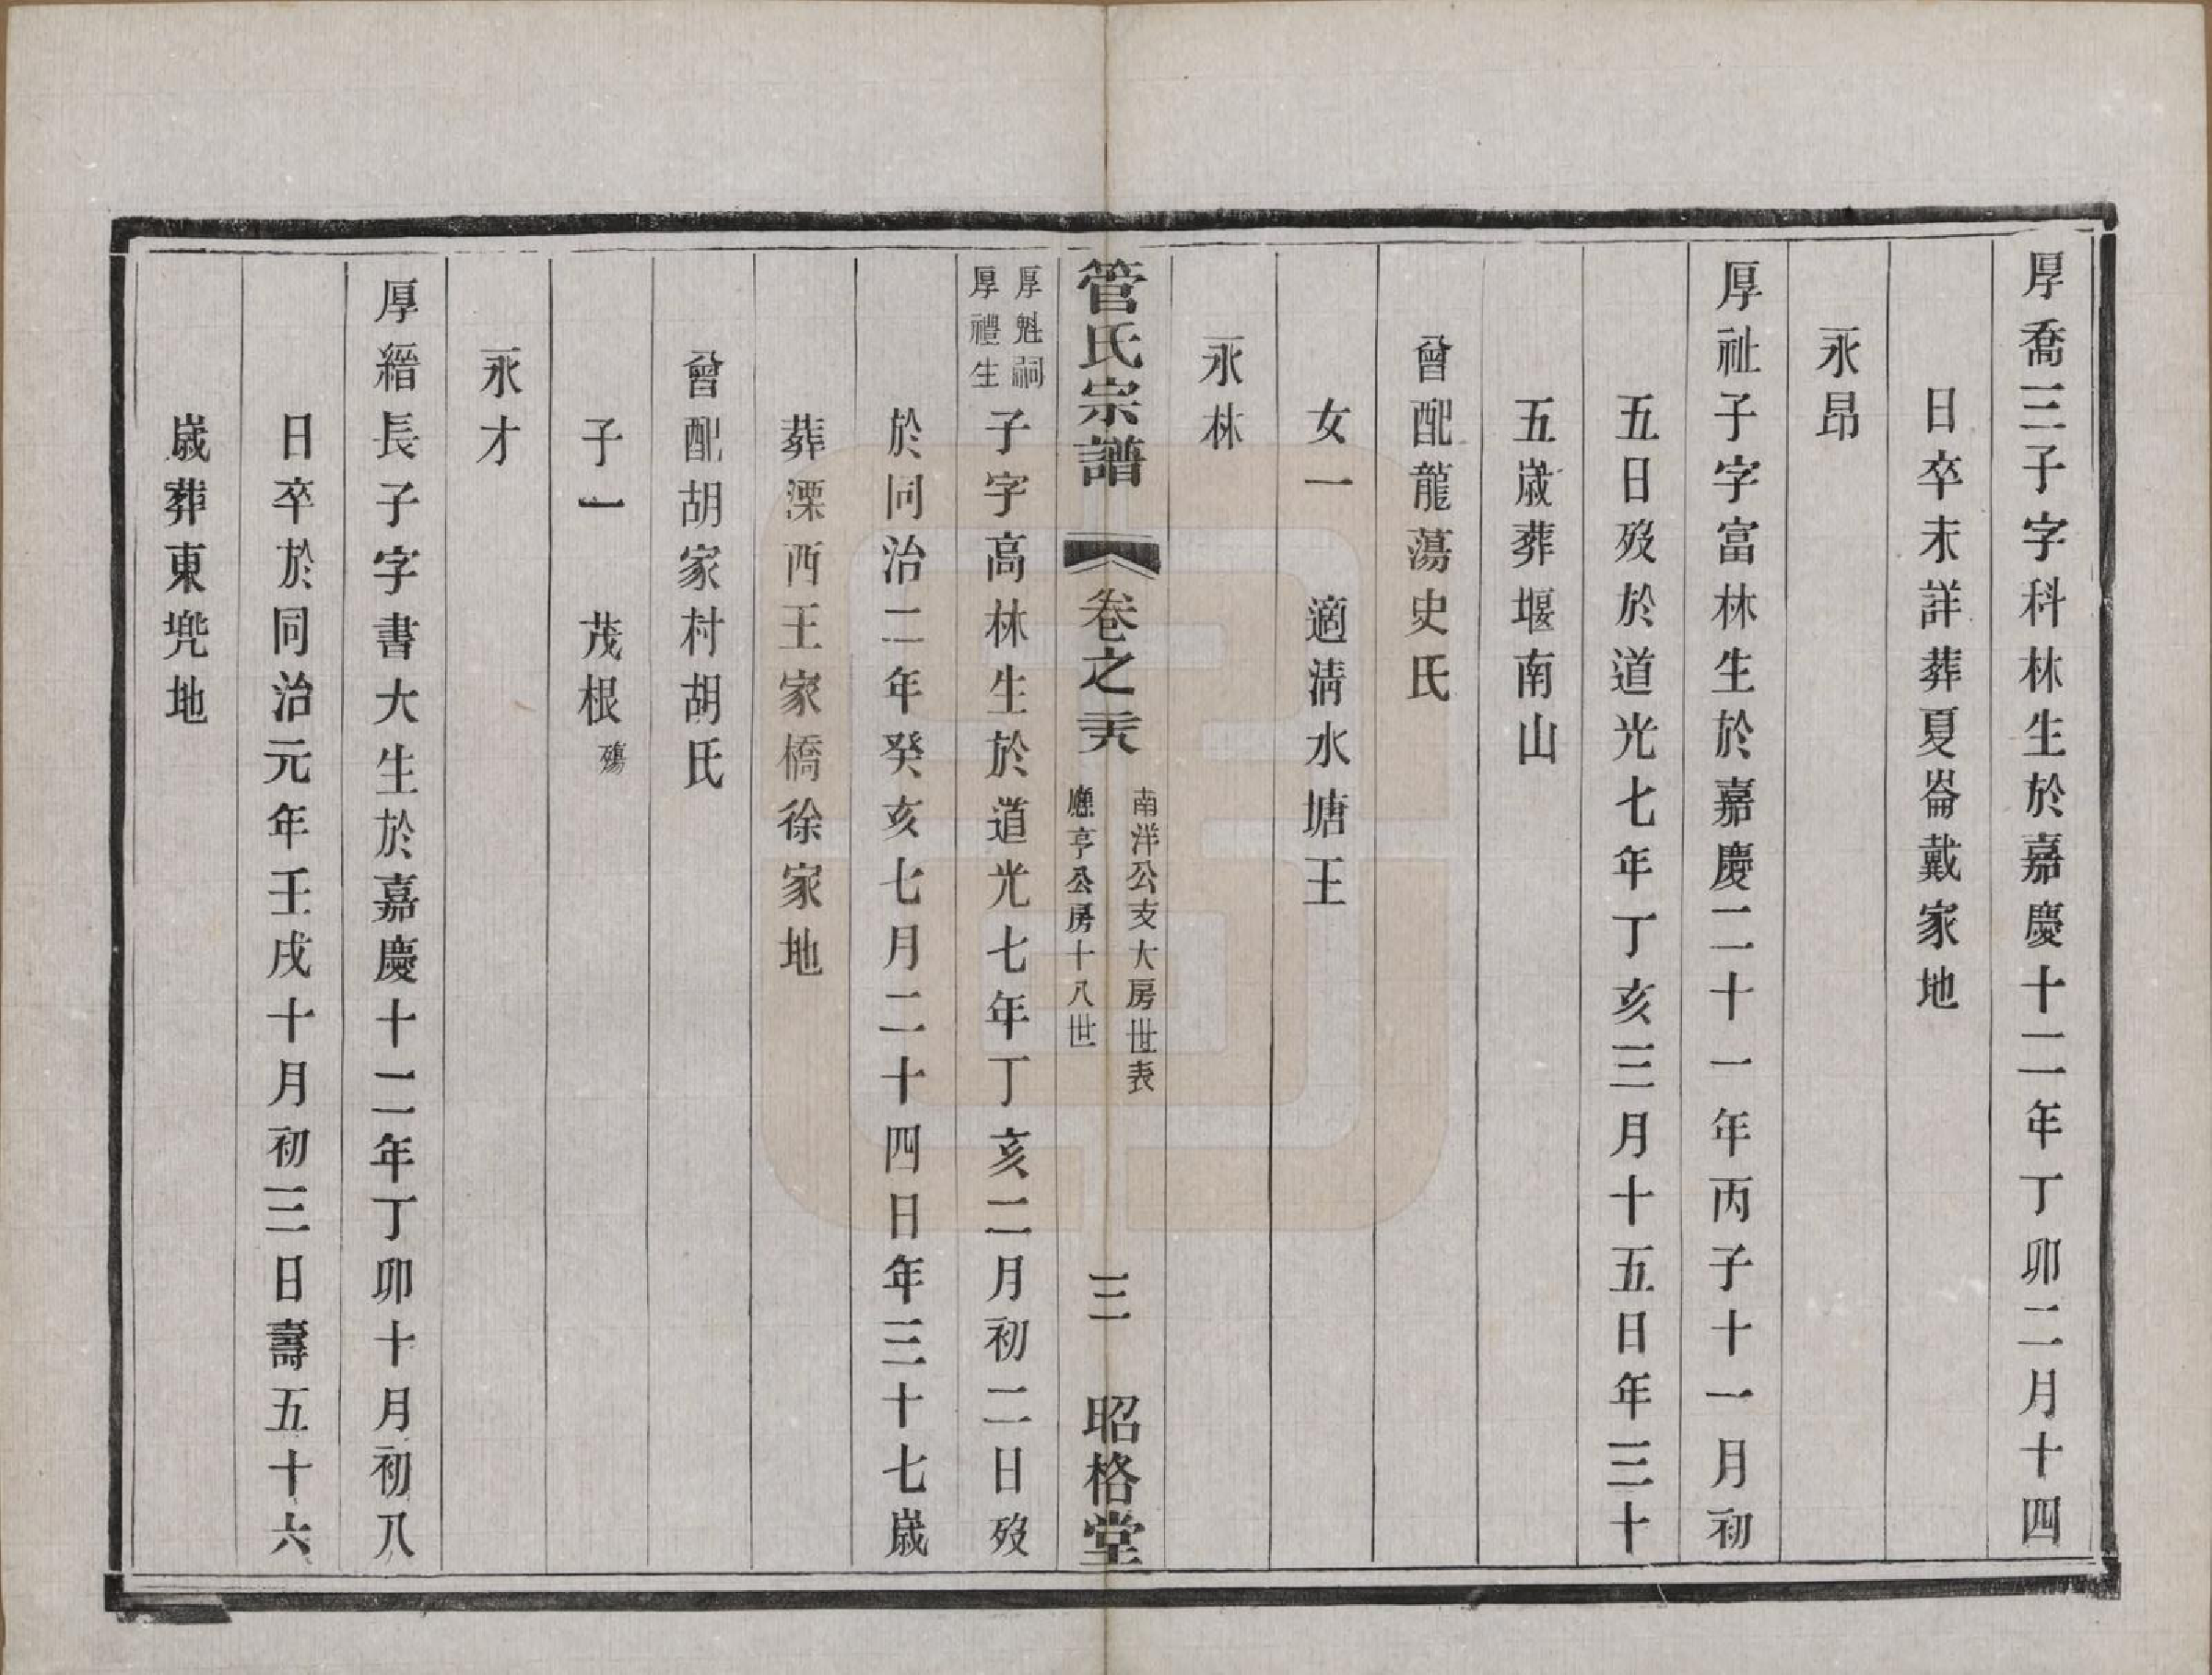 厚喬三子字科林生於嘉慶十二年丁卯二月十四
日卒未詳葬夏崙戴家地
永昂
厚祉子字富林生於嘉慶二十一年丙子十一月初
五日歿於道光七年丁亥三月十五日年三十
五歲葬堰南山
曾配龍蕩史氏
女一　適淸水塘王
永林
管氏宗譜
卷之
南洋公支大房世表
應亨公房十八世
三
昭格堂
厚魁嗣
厚禮生
子字高林生於道光七年丁亥二月初二日歿
於同治二年癸亥七月二十四日年三十七歲
葬溧西王家橋徐家地
曾配胡家村胡氏
子一　茂根殤
永才
厚縉長子字書大生於嘉慶十二年丁卯十月初八
日卒於同治元年壬戌十月初三日壽五十六
歲葬東兠地